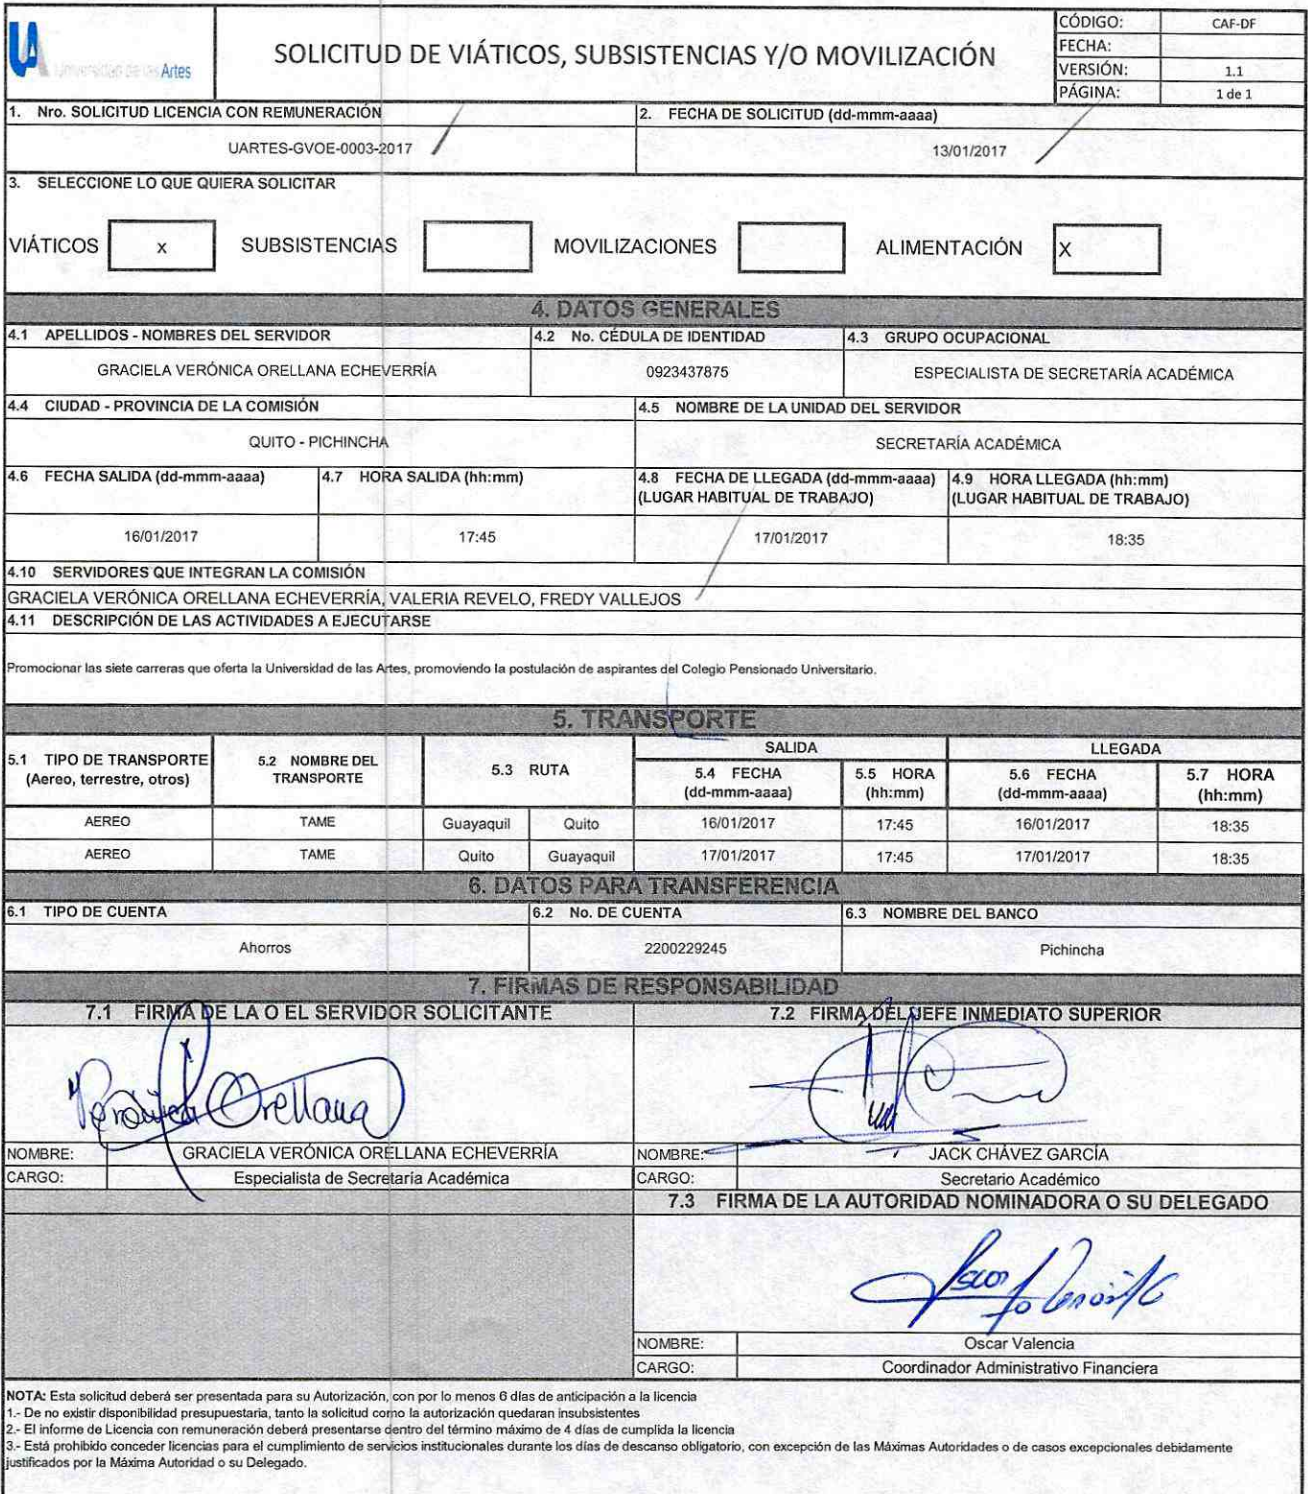 UA Universidad de las Artes
SOLICITUD DE VIÁTICOS, SUBSISTENCIAS Y/O MOVILIZACIÓN
CÓDIGO: CAF-DF
FECHA:
VERSIÓN: 1.1
PÁGINA: 1 de 1
1. Nro. SOLICITUD LICENCIA CON REMUNERACIÓN 2. FECHA DE SOLICITUD (dd-mmm-aaaa)
UARTES-GVOE-0003-2017 13/01/2017
3. SELECCIONE LO QUE QUIERA SOLICITAR
VIÁTICOS x SUBSISTENCIAS MOVILIZACIONES ALIMENTACIÓN X
4. DATOS GENERALES
4.1 APELLIDOS - NOMBRES DEL SERVIDOR 4.2 No. CÉDULA DE IDENTIDAD 4.3 GRUPO OCUPACIONAL
GRACIELA VERÓNICA ORELLANA ECHEVERRÍA 0923437875 ESPECIALISTA DE SECRETARÍA ACADÉMICA
4.4 CIUDAD - PROVINCIA DE LA COMISIÓN 4.5 NOMBRE DE LA UNIDAD DEL SERVIDOR
QUITO - PICHINCHA SECRETARÍA ACADÉMICA
4.6 FECHA SALIDA (dd-mmm-aaaa) 4.7 HORA SALIDA (hh:mm) 4.8 FECHA DE LLEGADA (dd-mmm-aaaa) 4.9 HORA LLEGADA (hh:mm)
(LUGAR HABITUAL DE TRABAJO) (LUGAR HABITUAL DE TRABAJO)
16/01/2017 17:45 17/01/2017 18:35
4.10 SERVIDORES QUE INTEGRAN LA COMISIÓN
GRACIELA VERÓNICA ORELLANA ECHEVERRÍA, VALERIA REVELO, FREDY VALLEJOS
4.11 DESCRIPCIÓN DE LAS ACTIVIDADES A EJECUTARSE
Promocionar las siete carreras que oferta la Universidad de las Artes, promoviendo la postulación de aspirantes del Colegio Pensionado Universitario.
5. TRANSPORTE
SALIDA LLEGADA
5.1 TIPO DE TRANSPORTE (Aereo, terrestre, otros) 5.2 NOMBRE DEL TRANSPORTE 5.3 RUTA 5.4 FECHA (dd-mmm-aaaa) 5.5 HORA (hh:mm) 5.6 FECHA (dd-mmm-aaaa) 5.7 HORA (hh:mm)
AEREO TAME Guayaquil Quito 16/01/2017 17:45 16/01/2017 18:35
AEREO TAME Quito Guayaquil 17/01/2017 17:45 17/01/2017 18:35
6. DATOS PARA TRANSFERENCIA
6.1 TIPO DE CUENTA 6.2 No. DE CUENTA 6.3 NOMBRE DEL BANCO
Ahorros 2200229245 Pichincha
7. FIRMAS DE RESPONSABILIDAD
7.1 FIRMA DE LA O EL SERVIDOR SOLICITANTE 7.2 FIRMA DEL JEFE INMEDIATO SUPERIOR
Verónica Orellana
NOMBRE: GRACIELA VERÓNICA ORELLANA ECHEVERRÍA NOMBRE: JACK CHÁVEZ GARCÍA
CARGO: Especialista de Secretaría Académica CARGO: Secretario Académico
7.3 FIRMA DE LA AUTORIDAD NOMINADORA O SU DELEGADO
NOMBRE: Oscar Valencia
CARGO: Coordinador Administrativo Financiera
NOTA: Esta solicitud deberá ser presentada para su Autorización, con por lo menos 6 días de anticipación a la licencia
1.- De no existir disponibilidad presupuestaria, tanto la solicitud como la autorización quedaran insubsistentes
2.- El informe de Licencia con remuneración deberá presentarse dentro del término máximo de 4 días de cumplida la licencia
3.- Está prohibido conceder licencias para el cumplimiento de servicios institucionales durante los días de descanso obligatorio, con excepción de las Máximas Autoridades o de casos excepcionales debidamente
justificados por la Máxima Autoridad o su Delegado.